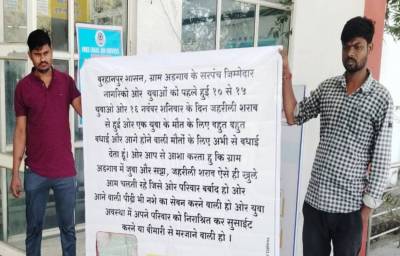 बुरहानपुर शासन, ग्राम अडगाव के सरपंच जिम्मेदार
नागरिको ओर युवाओं को पहले हुई १० से १५
युवाओ ओर १६ नवंबर शनिवार के दिन जहरीली शराब
से हुई ओर एक युवा के मौत के लिए बहुत बहुत
बधाई और आगे होने वाली मौतों के लिए अभी से बधाई
देता हूं। ओर आप से आशा करता हु कि ग्राम
अडगाव में जुवा और सट्टा, जहरीली शराब ऐसे ही खुले
आम चलती रहे जिसे ओर परिवार बर्बाद हो ओर
आने वाली पीढ़ी भी नशे का सेवन करने वाली हो ओर युवा
अवस्था में अपने परिवार को निराश्रित कर सुसाईट
करने या बीमारी से मरजाने वाली हो ।